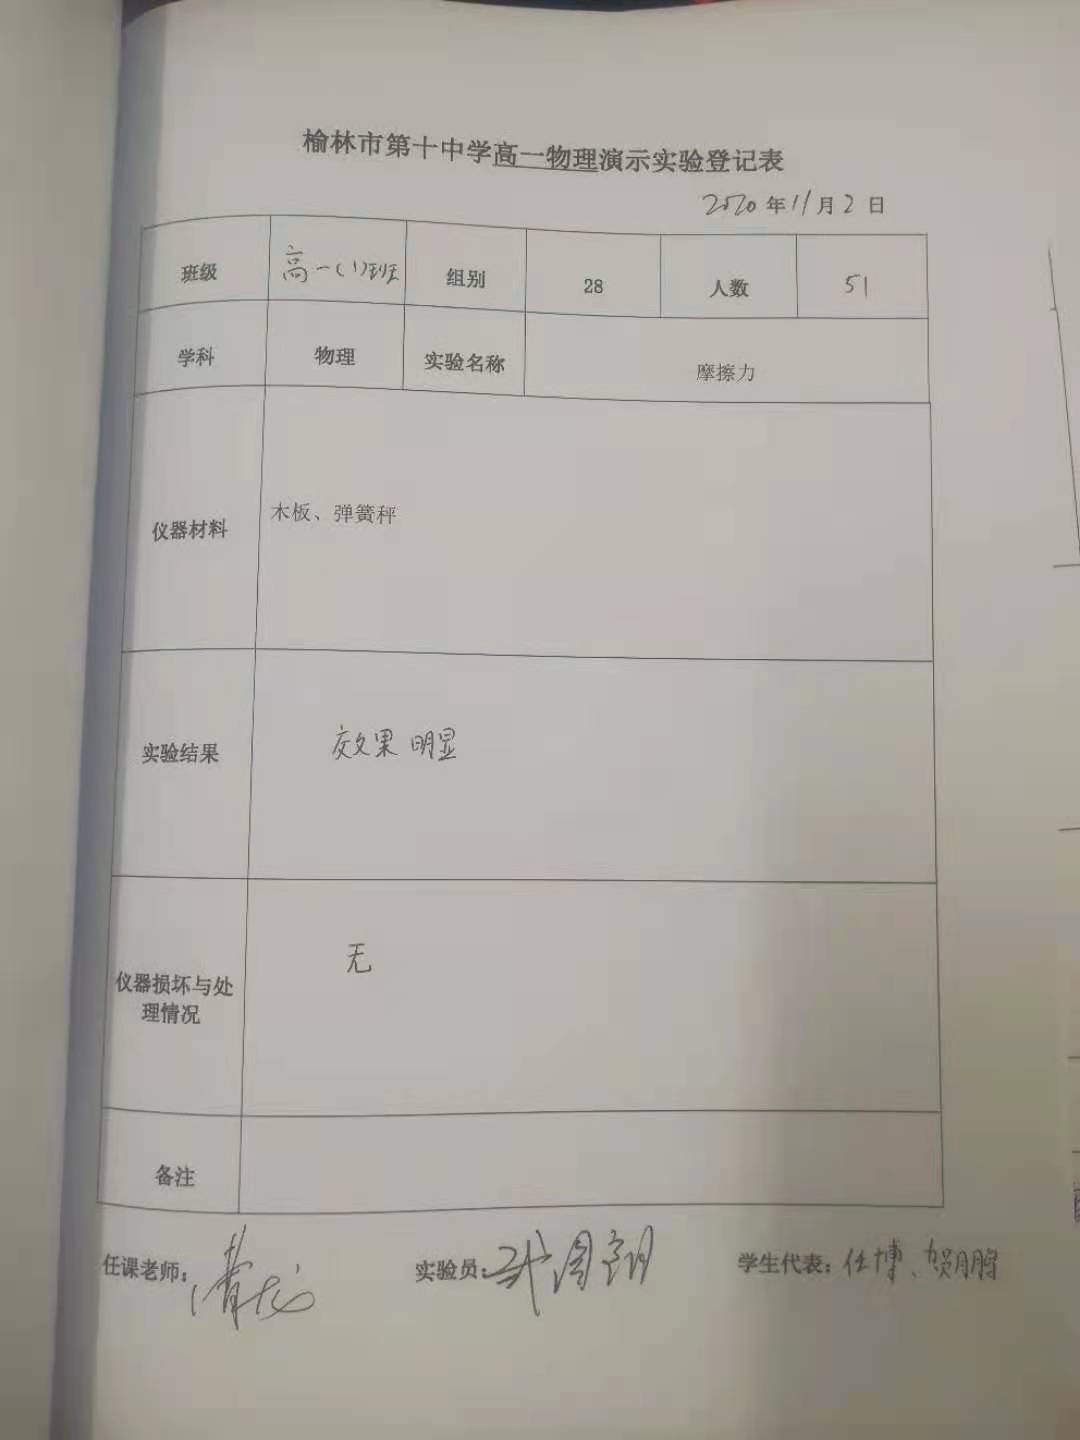 榆林市第十中学高一物理演示实验登记表
2020年11月2日
班级 高一(1)班 组别 28 人数 51
学科 物理 实验名称 摩擦力
仪器材料 木板、弹簧秤
实验结果 效果明显
仪器损坏与处
理情况 无
备注
任课老师: 实验员: 学生代表:任博、贺鹏